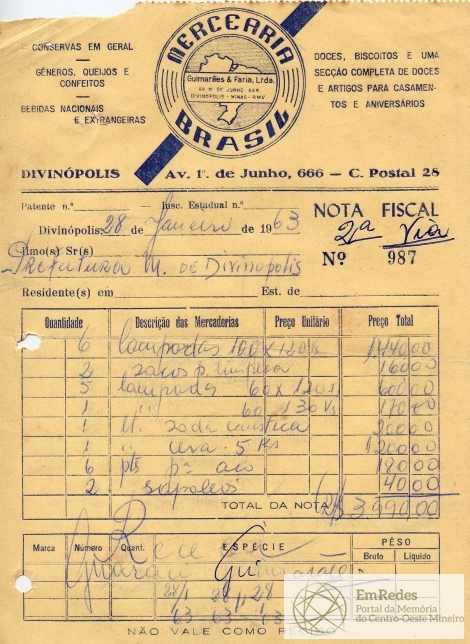 MERCEARIA
BRASIL
Guimarães & Faria, Ltda.
AV. 1º DE JUNHO 666
DIVINÓPOLIS - MINAS - R.M.V.
CONSERVAS EM GERAL
GÊNEROS, QUEIJOS E
CONFEITOS
BEBIDAS NACIONAIS
E EXTRANGEIRAS
DOCES, BISCOITOS E UMA
SECÇÃO COMPLETA DE DOCES
E ARTIGOS PARA CASAMEN-
TOS E ANIVERSÁRIOS
DIVINÓPOLIS Av. 1º. de Junho, 666 — C. Postal 28
Patente n.º Insc. Estadual n.º
NOTA FISCAL
Divinópolis, 28 de Janeiro de 1963
2ª Via
Ilmo(s) Sr(s)
Prefeitura M. de Divinopolis
Nº 987
Residente(s) em Est. de
Quantidade Descrição das Mercadorias Preço Unitário Preço Total
6 lampadas 100 x 120 Vs 1.440,00
2 sacos p. limpesa 160,00
5 lampadas 60 x 120 s 600,00
1 " 60 130 Vs 170,00
1 lt. soda caustica 200,00
1 " cera 5 Ks 1.200,00
6 pts pª aço 180,00
2 sapoleos 40,00
TOTAL DA NOTA Cr$ 3.990,00
Marca Número Quant. ESPÉCIE PÊSO
Bruto Líquido
28/1 28 28
63 63 63
NÃO VALE COMO RECIBO
EmRedes
Portal da Memória
do Centro-Oeste Mineiro